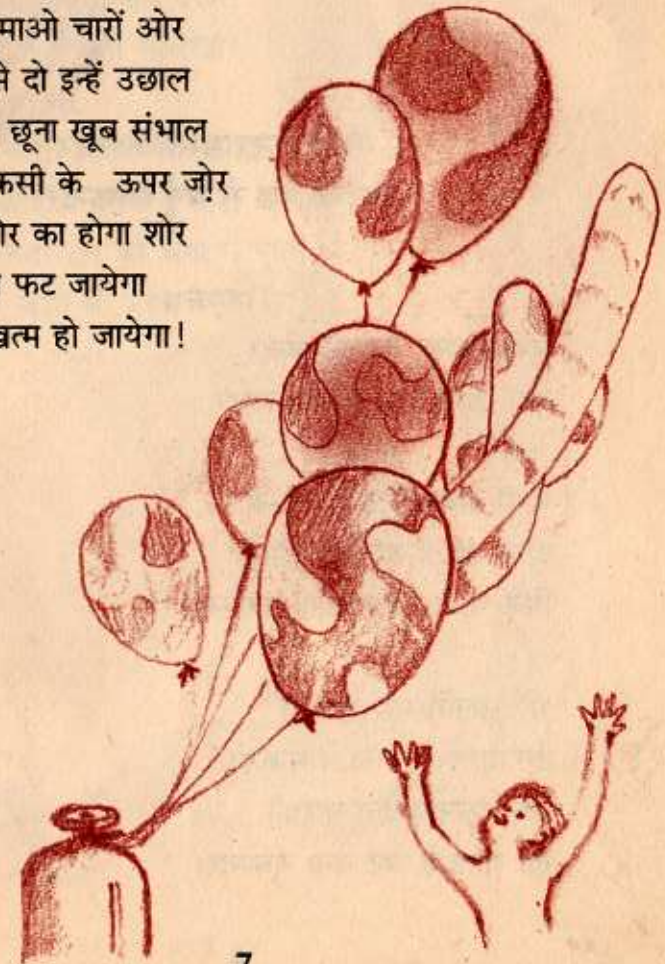 माओ चारों ओर
से दो इन्हें उछाल
छूना खूब संभाल
किसी के ऊपर ज़ोर
ोर का होगा शोर
फट जायेगा
खत्म हो जायेगा!
7